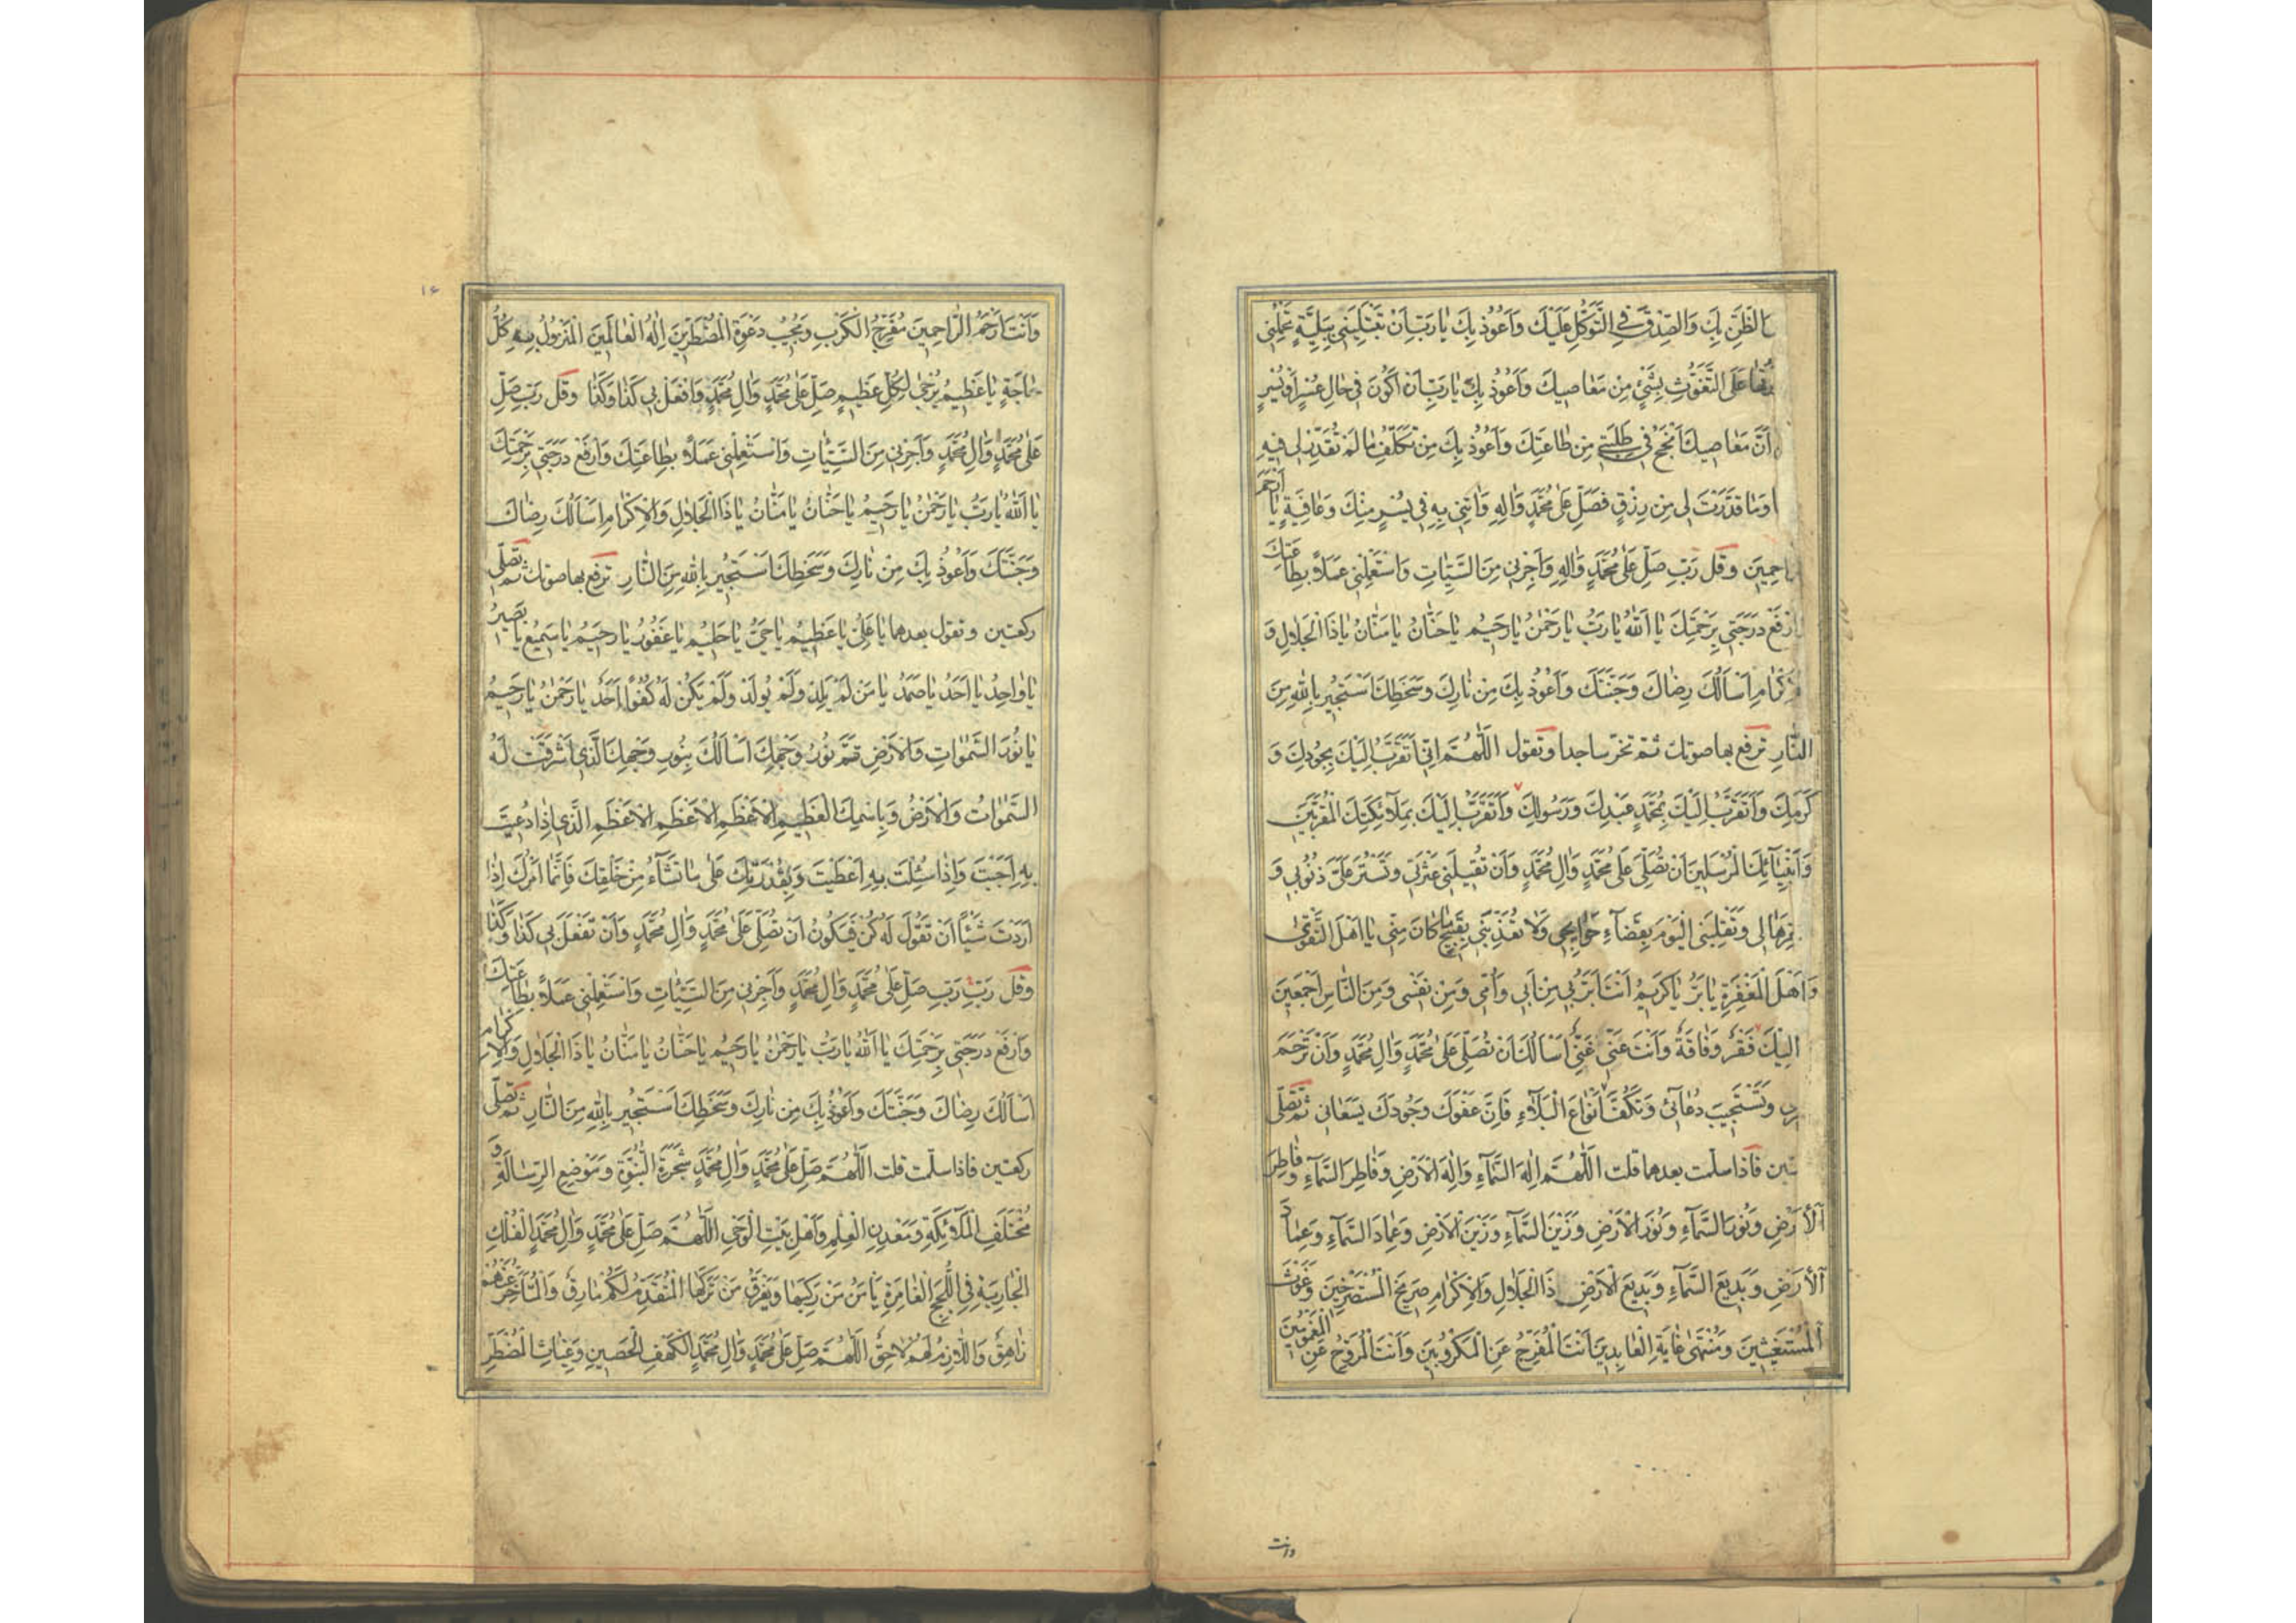 الظَّنِّ بِكَ وَالصِّدْقَ فِي التَّوَكُّلِ عَلَيْكَ وَاَعُوذُ بِكَ يَا رَبِّ اَنْ تَبْتَلِيَنِي بِبَلِيَّةٍ تَحْمِلُنِي
عَلَى التَّغَوُّثِ بِشَيْءٍ مِنْ مَعَاصِيكَ وَاَعُوذُ بِكَ يَا رَبِّ اَنْ اَكُونَ فِي حَالِ عُسْرٍ اَوْ يُسْرٍ
اَنَّ مَعَاصِيكَ اَنْجَحُ فِي طَلِبَتِي مِنْ طَاعَتِكَ وَاَعُوذُ بِكَ مِنْ تَكَلُّفِ مَا لَمْ تُقَدِّرْ لِي فِيهِ
وَمَا قَدَّرْتَ لِي مِنْ رِزْقٍ فَصَلِّ عَلَى مُحَمَّدٍ وَآلِهِ وَاٰتِنِي بِهِ فِي يُسْرٍ مِنْكَ وَعَافِيَةٍ يَا اَرْحَمَ
وقل رَبِّ صَلِّ عَلَى مُحَمَّدٍ وَآلِهِ وَاَجِرْنِي مِنَ السَّيِّئَاتِ وَاسْتَعْمِلْنِي عَمَلاً بِطَاعَتِكَ
ارْفَعْ دَرَجَتِي بِرَحْمَتِكَ يَا اَللّٰهُ يَا رَبُّ يَا رَحْمٰنُ يَا رَحِيمُ يَا حَنَّانُ يَا مَنَّانُ يَا ذَا الْجَلَالِ وَ
اَسْاَلُكَ رِضَاكَ وَجَنَّتَكَ وَاَعُوذُ بِكَ مِنْ نَارِكَ وَسَخَطِكَ اَسْتَجِيرُ بِاللّٰهِ مِنَ
النَّارِ ترفع بها صوتك ثم تخر ساجدا وتقول اَللّٰهُمَّ اِنِّي اَتَقَرَّبُ اِلَيْكَ بِجُودِكَ وَ
كَرَمِكَ وَاَتَقَرَّبُ اِلَيْكَ بِمُحَمَّدٍ عَبْدِكَ وَرَسُولِكَ وَاَتَقَرَّبُ اِلَيْكَ بِمَلَآئِكَتِكَ الْمُقَرَّبِينَ
وَاَنْبِيَآئِكَ الْمُرْسَلِينَ اَنْ تُصَلِّيَ عَلَى مُحَمَّدٍ وَآلِ مُحَمَّدٍ وَاَنْ تُقِيلَنِي عَثْرَتِي وَتَسْتُرَ عَلَيَّ ذُنُوبِي وَ
لِي وَتَقْلِبَنِي الْيَوْمَ بِقَضَآءِ حَوَائِجِي وَلَا تُعَذِّبَنِي بِقَبِيحٍ كَانَ مِنِّي يَا اَهْلَ التَّقْوٰى
وَاَهْلَ الْمَغْفِرَةِ يَا بَرُّ يَا كَرِيمُ اَنْتَ اَبَرُّ بِي مِنْ اَبِي وَاُمِّي وَمِنْ نَفْسِي وَمِنَ النَّاسِ اَجْمَعِينَ
اِلَيْكَ فَقْرٌ وَفَاقَةٌ وَاَنْتَ عَنِّي غَنِيٌّ اَسْاَلُكَ اَنْ تُصَلِّيَ عَلَى مُحَمَّدٍ وَآلِ مُحَمَّدٍ وَاَنْ تَرْحَمَ
وَتَسْتَجِيبَ دُعَآئِي وَتَكُفَّ اَنْوَاعَ الْبَلَآءِ فَاِنَّ عَفْوَكَ وَجُودَكَ يَسَعَانِي ثم تصلّى
فاذا سلّمت بعدهما قلت اَللّٰهُمَّ اِلٰهَ السَّمَآءِ وَاِلٰهَ الْاَرْضِ وَفَاطِرَ السَّمَآءِ وَفَاطِرَ
الْاَرْضِ وَنُورَ السَّمَآءِ وَنُورَ الْاَرْضِ وَزَيْنَ السَّمَآءِ وَزَيْنَ الْاَرْضِ وَعِمَادَ السَّمَآءِ وَعِمَادَ
الْاَرْضِ وَبَدِيعَ السَّمَآءِ وَبَدِيعَ الْاَرْضِ ذَا الْجَلَالِ وَالْاِكْرَامِ صَرِيخَ الْمُسْتَصْرِخِينَ وَغَوْثَ
الْمُسْتَغِيثِينَ وَمُنْتَهٰى غَايَةِ الْعَابِدِينَ اَنْتَ الْمُفَرِّجُ عَنِ الْمَكْرُوبِينَ وَاَنْتَ الْمُرَوِّحُ عَنِ الْمَغْمُومِينَ
وانت
۱۶
وَاَنْتَ اَرْحَمُ الرَّاحِمِينَ مُفَرِّجُ الْكَرْبِ وَمُجِيبُ دَعْوَةِ الْمُضْطَرِّينَ اِلٰهُ الْعَالَمِينَ الْمَنْزُولُ بِهِ كُلُّ
حَاجَةٍ يَا عَظِيمُ يُرْجٰى لِكُلِّ عَظِيمٍ صَلِّ عَلَى مُحَمَّدٍ وَآلِ مُحَمَّدٍ وَافْعَلْ بِي كَذَا وَكَذَا وقل رَبِّ صَلِّ
عَلَى مُحَمَّدٍ وَآلِ مُحَمَّدٍ وَاَجِرْنِي مِنَ السَّيِّئَاتِ وَاسْتَعْمِلْنِي عَمَلاً بِطَاعَتِكَ وَارْفَعْ دَرَجَتِي بِرَحْمَتِكَ
يَا اَللّٰهُ يَا رَبُّ يَا رَحْمٰنُ يَا رَحِيمُ يَا حَنَّانُ يَا مَنَّانُ يَا ذَا الْجَلَالِ وَالْاِكْرَامِ اَسْاَلُكَ رِضَاكَ
وَجَنَّتَكَ وَاَعُوذُ بِكَ مِنْ نَارِكَ وَسَخَطِكَ اَسْتَجِيرُ بِاللّٰهِ مِنَ النَّارِ ترفع بها صوتك ثم تصلّى
ركعتين وتقول بعدهما يَا عَلِيُّ يَا عَظِيمُ يَا حَيُّ يَا حَلِيمُ يَا غَفُورُ يَا رَحِيمُ يَا سَمِيعُ يَا بَصِيرُ
يَا وَاحِدُ يَا اَحَدُ يَا صَمَدُ يَا مَنْ لَمْ يَلِدْ وَلَمْ يُولَدْ وَلَمْ يَكُنْ لَهُ كُفُوًا اَحَدٌ يَا رَحْمٰنُ يَا رَحِيمُ
يَا نُورَ السَّمٰوَاتِ وَالْاَرْضِ تَمَّ نُورُ وَجْهِكَ اَسْاَلُكَ بِنُورِ وَجْهِكَ الَّذِي اَشْرَقَتْ لَهُ
السَّمٰوَاتُ وَالْاَرْضُ وَبِاسْمِكَ الْعَظِيمِ الْاَعْظَمِ الْاَعْظَمِ الْاَعْظَمِ الَّذِي اِذَا دُعِيتَ
بِهِ اَجَبْتَ وَاِذَا سُئِلْتَ بِهِ اَعْطَيْتَ وَبِقُدْرَتِكَ عَلَى مَا تَشَآءُ مِنْ خَلْقِكَ فَاِنَّمَا اَمْرُكَ اِذَا
اَرَدْتَ شَيْئًا اَنْ تَقُولَ لَهُ كُنْ فَيَكُونُ اَنْ تُصَلِّيَ عَلَى مُحَمَّدٍ وَآلِ مُحَمَّدٍ وَاَنْ تَفْعَلَ بِي كَذَا وَكَذَا
وقل رَبِّ رَبِّ صَلِّ عَلَى مُحَمَّدٍ وَآلِ مُحَمَّدٍ وَاَجِرْنِي مِنَ السَّيِّئَاتِ وَاسْتَعْمِلْنِي عَمَلاً بِطَاعَتِكَ
وَارْفَعْ دَرَجَتِي بِرَحْمَتِكَ يَا اَللّٰهُ يَا رَبُّ يَا رَحْمٰنُ يَا رَحِيمُ يَا حَنَّانُ يَا مَنَّانُ يَا ذَا الْجَلَالِ وَالْاِكْرَامِ
اَسْاَلُكَ رِضَاكَ وَجَنَّتَكَ وَاَعُوذُ بِكَ مِنْ نَارِكَ وَسَخَطِكَ اَسْتَجِيرُ بِاللّٰهِ مِنَ النَّارِ ثم تصلّى
ركعتين فاذا سلّمت قلت اَللّٰهُمَّ صَلِّ عَلَى مُحَمَّدٍ وَآلِ مُحَمَّدٍ شَجَرَةِ النُّبُوَّةِ وَمَوْضِعِ الرِّسَالَةِ وَ
مُخْتَلَفِ الْمَلَآئِكَةِ وَمَعْدِنِ الْعِلْمِ وَاَهْلِ بَيْتِ الْوَحْيِ اَللّٰهُمَّ صَلِّ عَلَى مُحَمَّدٍ وَآلِ مُحَمَّدٍ الْفُلْكِ
الْجَارِيَةِ فِي اللُّجَجِ الْغَامِرَةِ يَأْمَنُ مَنْ رَكِبَهَا وَيَغْرَقُ مَنْ تَرَكَهَا الْمُتَقَدِّمُ لَهُمْ مَارِقٌ وَالْمُتَاَخِّرُ عَنْهُمْ
زَاهِقٌ وَاللَّازِمُ لَهُمْ لَاحِقٌ اَللّٰهُمَّ صَلِّ عَلَى مُحَمَّدٍ وَآلِ مُحَمَّدٍ الْكَهْفِ الْحَصِينِ وَغِيَاثِ الْمُضْطَرِّ